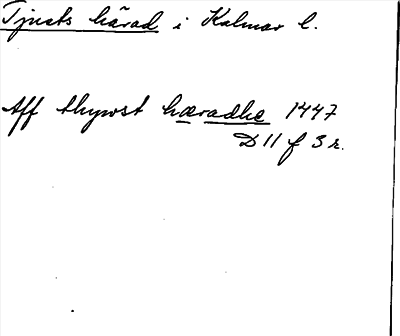 Tjusts härad i Kalmar l.
Aff thywst hæradhe 1447
D 11 f 3 r.